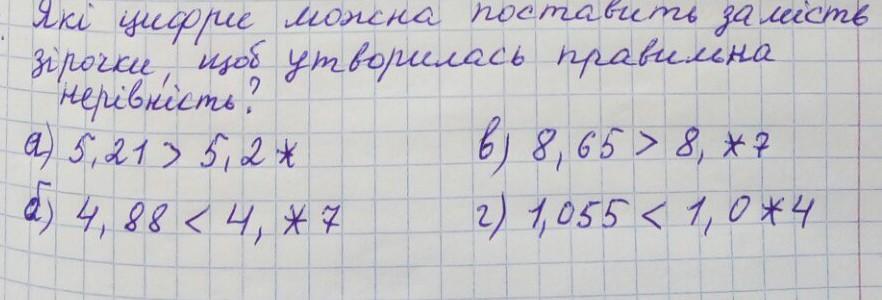 Які цифри можна поставить замість
зірочки, щоб утворилась правильна
нерівність?
а) 5,21 > 5,2*
в) 8,65 > 8,*7
б) 4,88 < 4,*7
г) 1,055 < 1,0*4